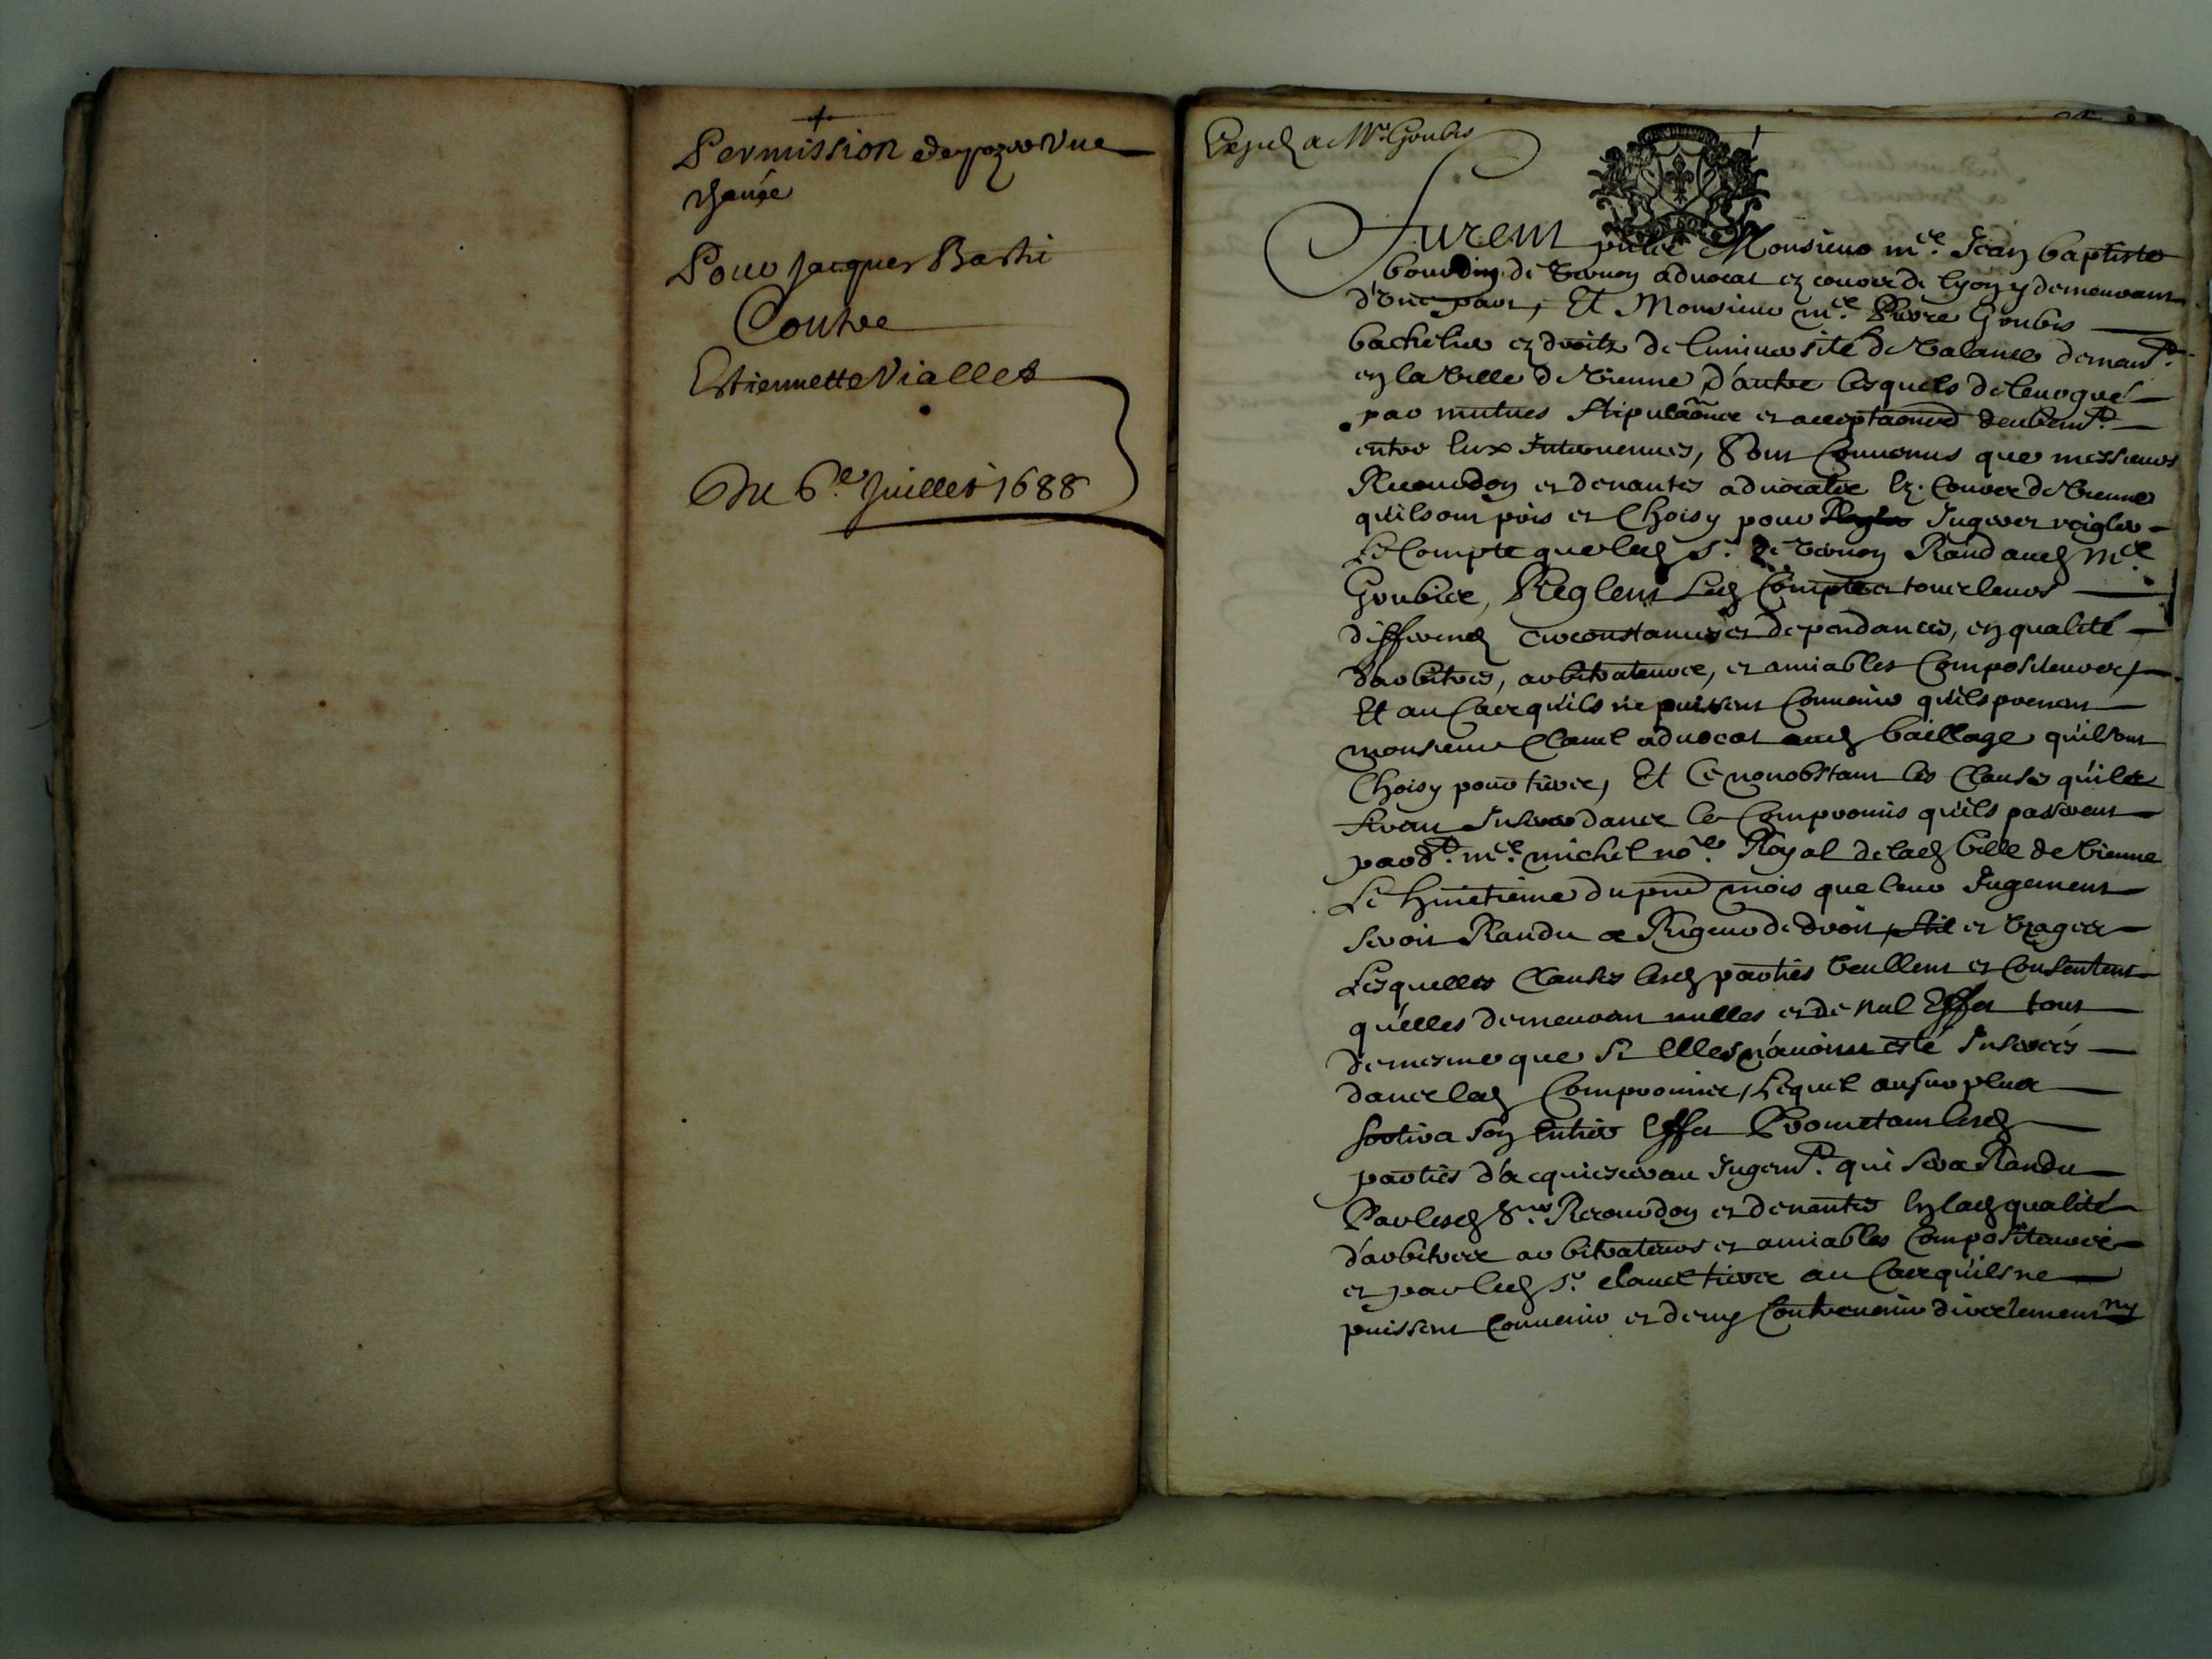 Permission de pozer vne
Pour Jacques Barthi
Contre
Estiennette Viallet
Du 6.e Juillet 1688
a Mr Goubis
Furent Monsieur me. Jean baptiste
de advocat ez cours de lyon y demeurant
d'vne part, Et Monsieur me. Pierre Goubis
bachelier ez droitz de luniversité de valance demeurt.
en la ville de vienne d'autre lesquels de leur gré
par mutues stipulaõns et acceptaõns deubemt.
entre eux Interuenues, Sont Conuenus que messieurs
et denantes aduocatz ez. Cours de vienne
qu'ils ont pris et Choisy pour Juger et reigler
Le Compte que led sr. de Rand aud me.
Goubier, Reglent Led Compte et tous leurs
differends circonstances et dependances, en qualité
d'arbitres, arbitrateurs, et amiables Compositeurs
Et au Cas qu'ils ne puissent Conuenir qu'ils prenent
monsieur Clauel aduocat aud bailliage qu'ils ont
Choisy pour tiers, Et Ce nonobstant les Clauses qu'ils
firent Inserer dans le Compromis qu'ils passerent
pardt. me. michel nore. Royal de lad ville de vienne
Le huictieme du pnt mois que leur Jugement
seroit Randu a Rigeur de droit stil et vzages
Lesquelles Clauses lesd parties veullent et Consentent
qu'elles demeurent nulles et de nul Effet tout
de mesme que si Elles n'auoint esté Inserés
dans led Compromis, Lequel au surplus
sortira son Entier Effet Prometant lesd
parties d'acquiescer au Jugemt. qui sera Randu
Par lesd Srs. et denantes En lad qualité
d'arbitres arbitrateurs et amiables Compositeurs
et par led sr. Clauel tiers au Cas qu'ils ne
puissent Conuenir et de ny Contreuenir directement ny